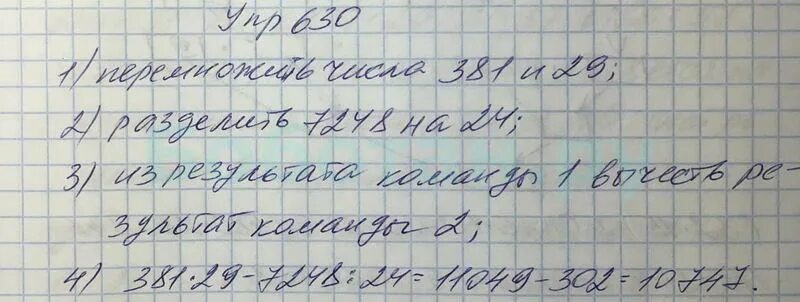 Упр 630
1) перемножить числа 381 и 29;
2) разделить 7248 на 24;
3) из результата команды 1 вычесть ре-
зультат команды 2;
4) 381·29-7248:24=11049-302=10747.